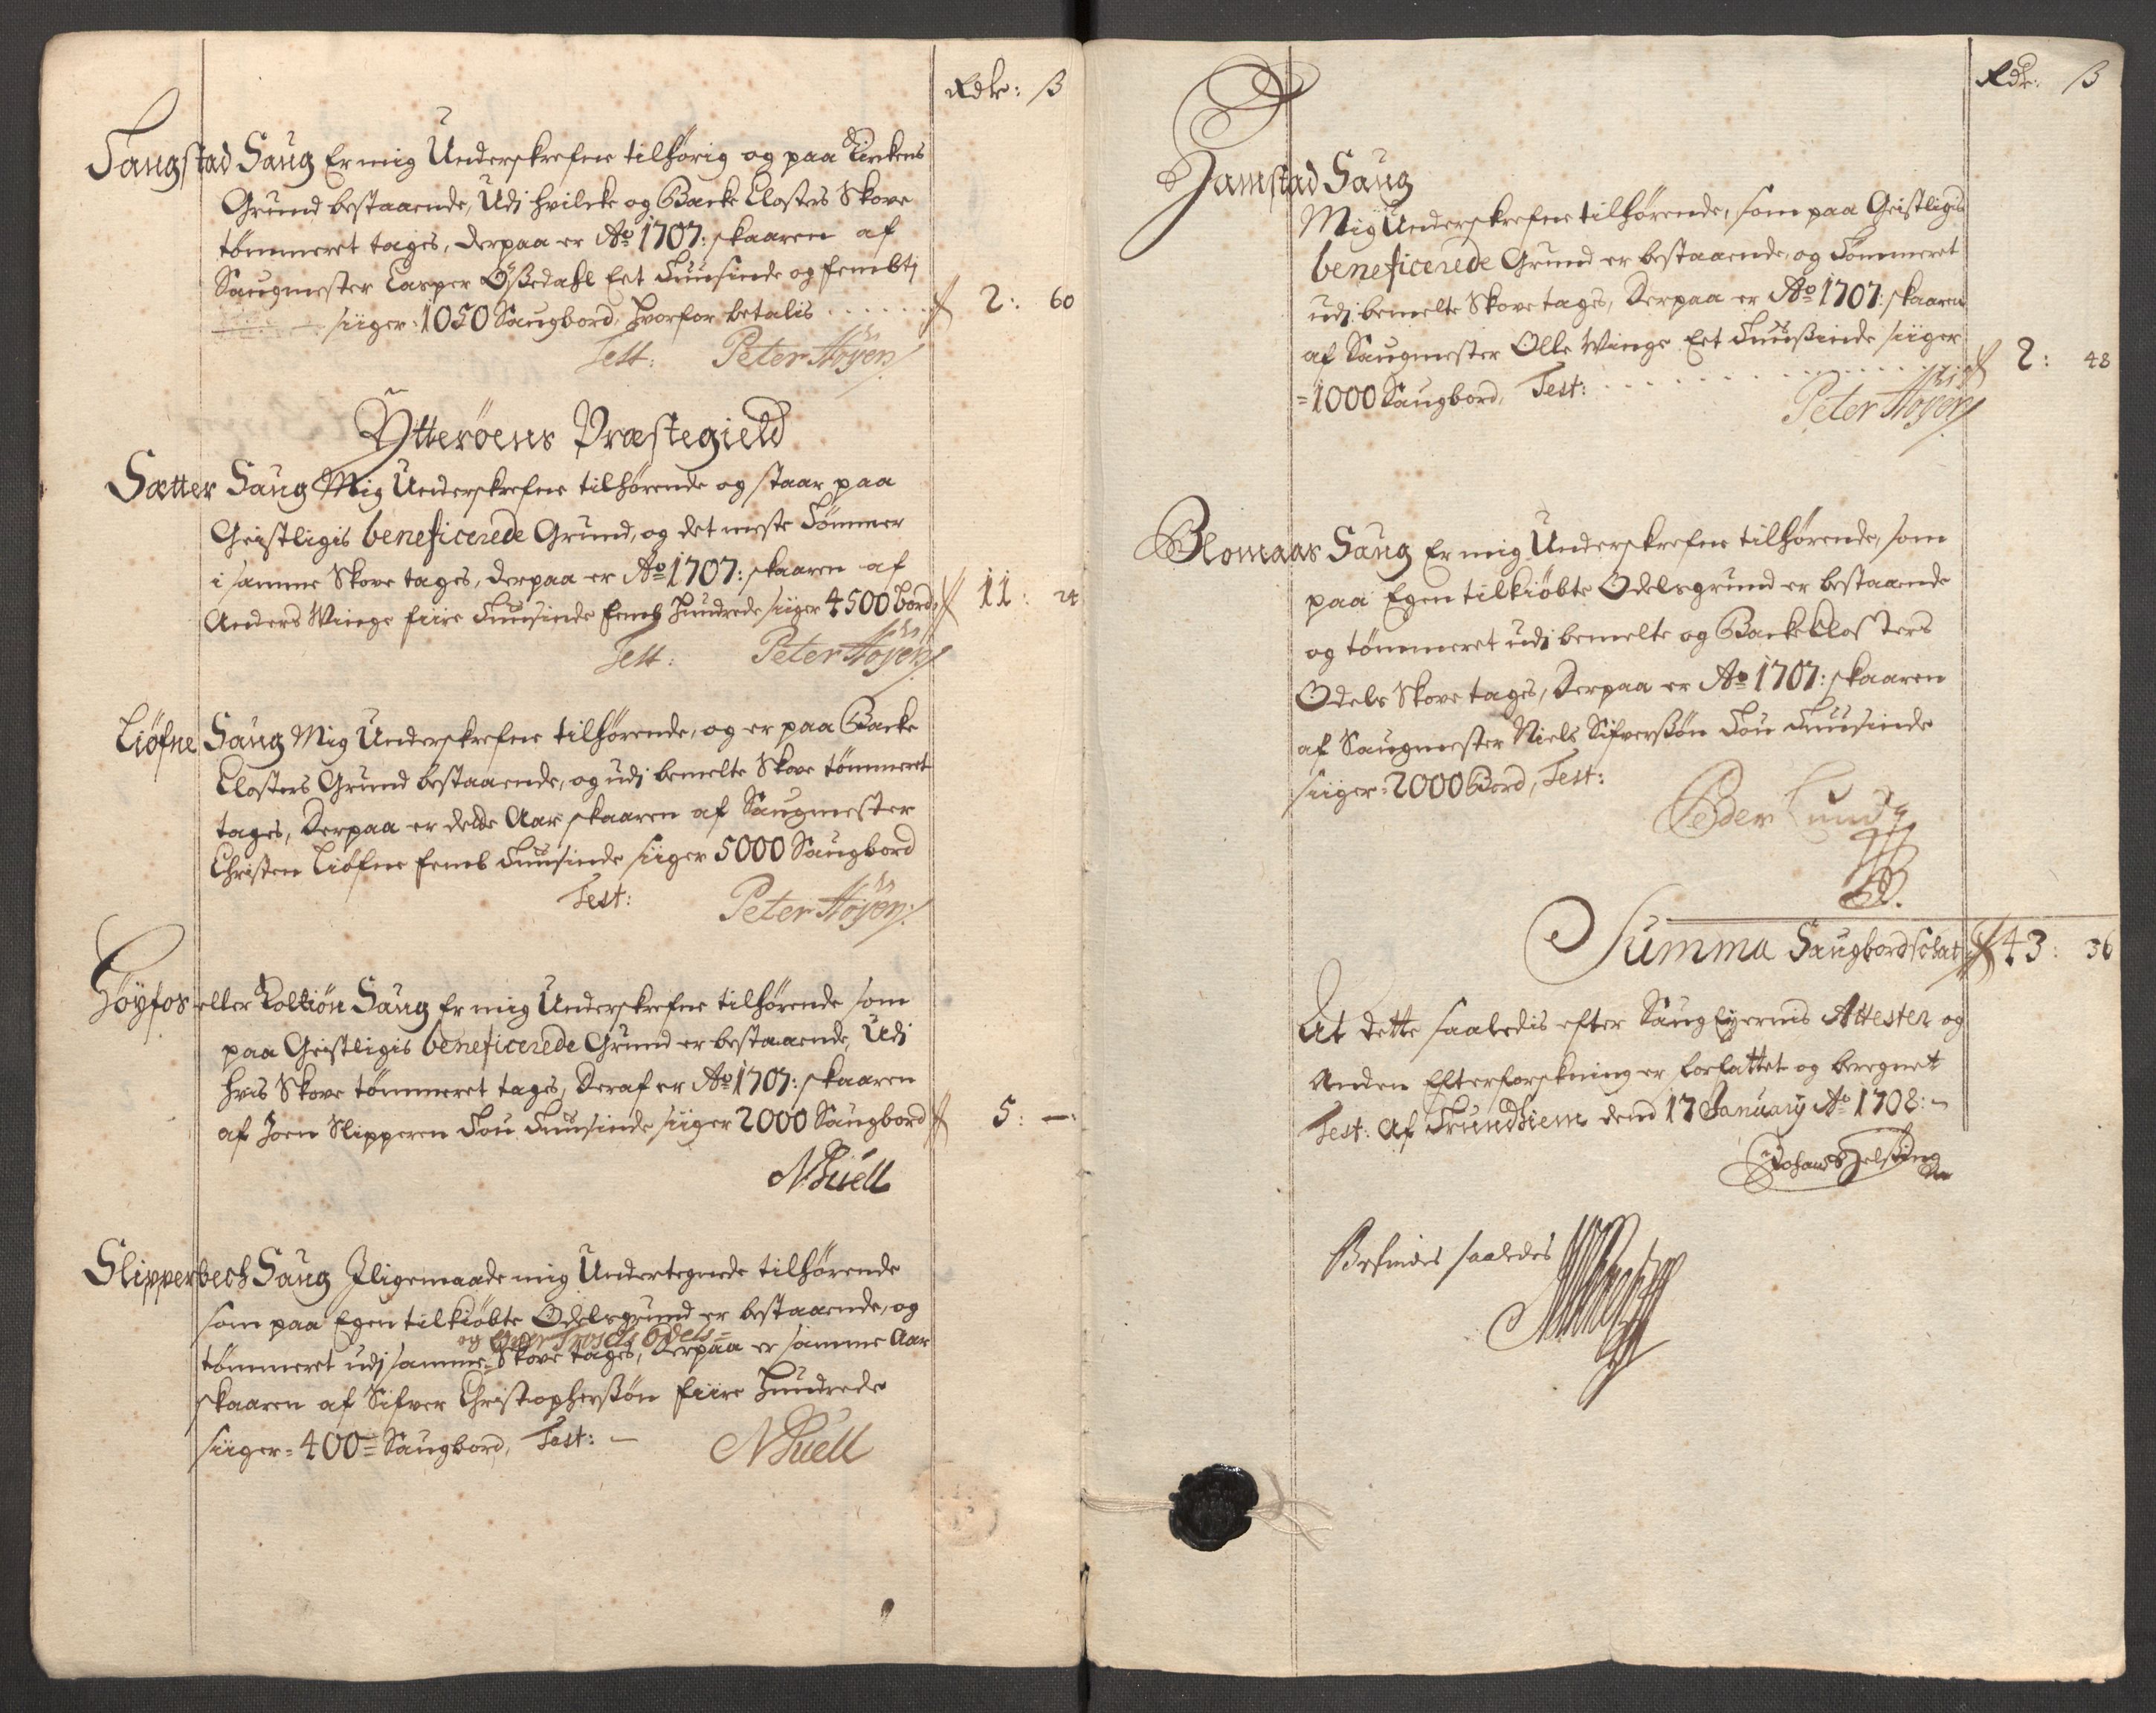 Rdlr: ß
Fangstad Saug Er mig Underskrefne tilhörig og paa Kirckens
Grund bestaaende, Udj hvilcke og Backe Closters Skove
tömmeret tages, derpaa er Ao 1707: skaaren af
Saugmester Casper Ößedahl Eet Tuusinde og fembtj
siiger: 1050 Saugbord, Hvorfor betalis . . . . . . 2: 60
Test: Peter Höyen
Ytteröens Præstegield
Sætter Saug Mig Underskrefne tilhørende og staar paa
Geistligis beneficerede Grund, og det meste Tömmer
i samme Skove tages, derpaa er Ao 1707: skaaren af
Anders Winge fiire Tuusinde femb Hundrede siiger 4500 bord 11: 24
Test: Peter Höyen
Liøfne Saug Mig Underskrefne tilhørende, og er paa Backe
Closters Grund bestaaende, og udj bemelte Skove tömmeret
tages, Derpaa er dette Aar skaaren af Saugmester
Christen Liøfne femb Tuusinde siiger 5000 Saugbord
Test: Peter Höyen
Höyfos eller Koltiön Saug Er mig Underskrefne tilhørende som
paa Geistligis beneficerede Grund er bestaaende, Udj
hvis Skove tömmeret tages, Deraf er Ao 1707: skaaren
af Joen Slipperen Tou Tuusinde siiger 2000 Saugbord 5: —
N Juell
Slipperbech Saug Iligemaade mig Undertegnede tilhørende
som paa Egen tilkiøbte Odelsgrund er bestaaende, og
og Odels
tömmeret udj samme Skove tages, Derpaa er samme Aar
skaaren af Sifver Christopherßøn fiire Hundrede
siiger = 400 = Saugbord, Test: —
N Juell
Rdlr: ß
Jamstad Saug
Mig Underskrefne tilhørende, som paa Geistligis
beneficerede Grund er bestaaende, og Tömmeret
udj bemelte Skove tages, Derpaa er Ao 1707: skaaren
af Saugmester Olle Winge Eet Tuußinde siiger
= 1000 Saugbord, Test: . . . . . . 2: 48
Peter Höyen
Blomaas Saug Er mig Underskrefne tilhørende, som
paa Egen tilkiøbte Odelsgrund er bestaaende
og tömmeret udj bemelte og Backe Closters
Odels Skove tages, Derpaa er Ao 1707: skaaren
af Saugmester Niels Sifverßøn Tou Tuusinde
siiger = 2000 Bord, Test:
Peder Lund
Summa Saugbordschat 43: 36
At dette saaledis efter Saug Eyernis Attester og
Anden Efterforskning er forfattet og beregnet
Test: Af Trundhiem dend 17 January Ao 1708: —
Befindes saaledes